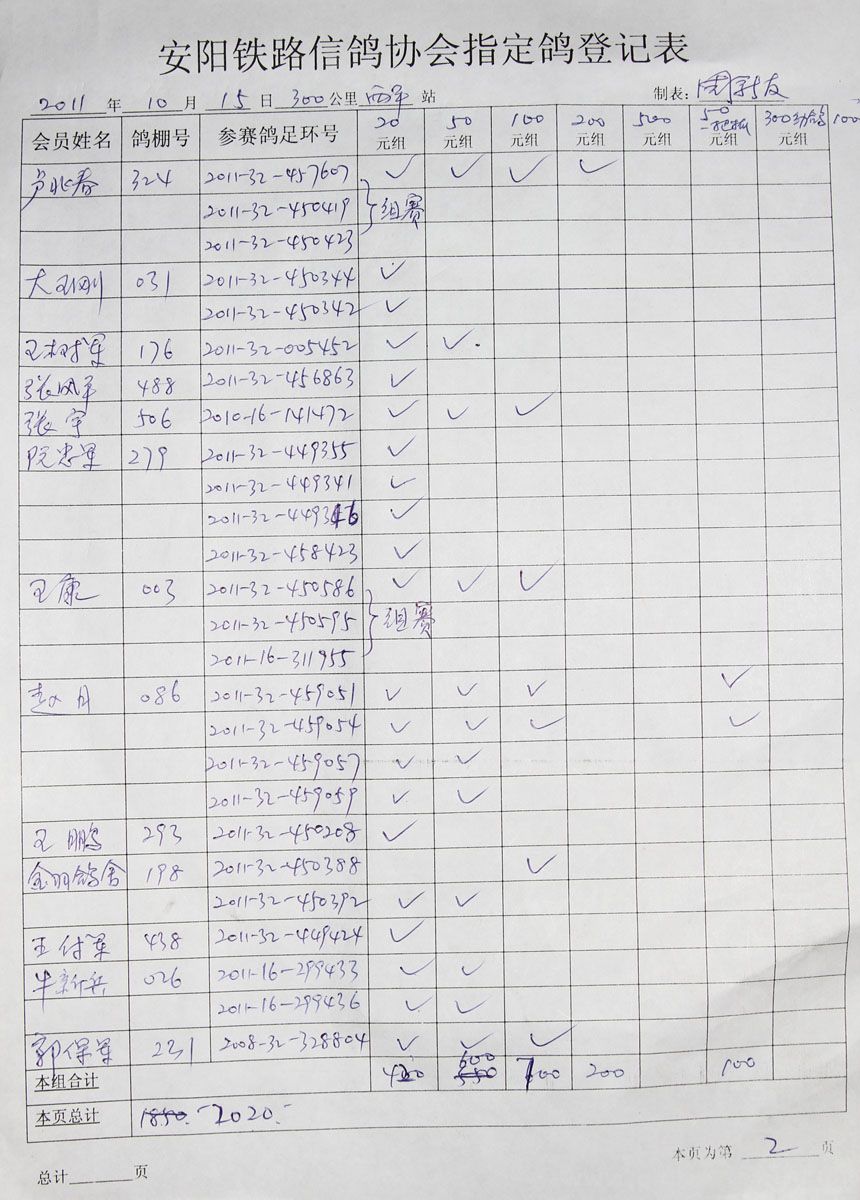 安阳铁路信鸽协会指定鸽登记表
2011 年 10 月 15 日 300 公里 西平 站 制表:
会员姓名 鸽棚号 参赛鸽足环号 20元组 50元组 100元组 200元组 500元组 50一把抓元组 300幼鸽元组 100
卢兆春 324 2011-32-457607 ✓ ✓ ✓ ✓
2011-32-450419 组赛
2011-32-450423
大王刚 031 2011-32-450344 ✓
2011-32-450342 ✓
王树军 176 2011-32-005452 ✓ ✓
张风平 488 2011-32-456863 ✓
张宇 506 2010-16-141472 ✓ ✓ ✓
阮忠军 279 2011-32-449355 ✓
2011-32-449341 ✓
2011-32-449346 ✓
2011-32-458423 ✓
王康 003 2011-32-450586 ✓ ✓ ✓
2011-32-450595 组赛
2011-16-311955
赵义月 086 2011-32-459051 ✓ ✓ ✓ ✓
2011-32-459054 ✓ ✓ ✓ ✓
2011-32-459057 ✓ ✓
2011-32-459059 ✓ ✓
王鹏 293 2011-32-450208 ✓
金羽鸽舍 198 2011-32-450388 ✓
2011-32-450392 ✓ ✓
王付军 438 2011-32-449424 ✓
牛新兵 026 2011-16-299433 ✓ ✓
2011-16-299436 ✓ ✓
郭保军 231 2008-32-328804 ✓ ✓ ✓
本组合计 420 550 600 700 200 100
本页总计 1850.- 2020.-
本页为第 2 页
总计 页